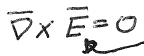 ∇̅ × E̅ = 0